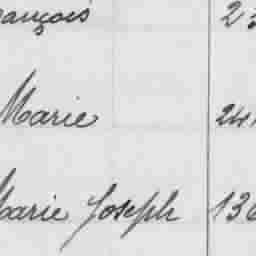 ançois 23
Marie 24
Marie Joseph 136